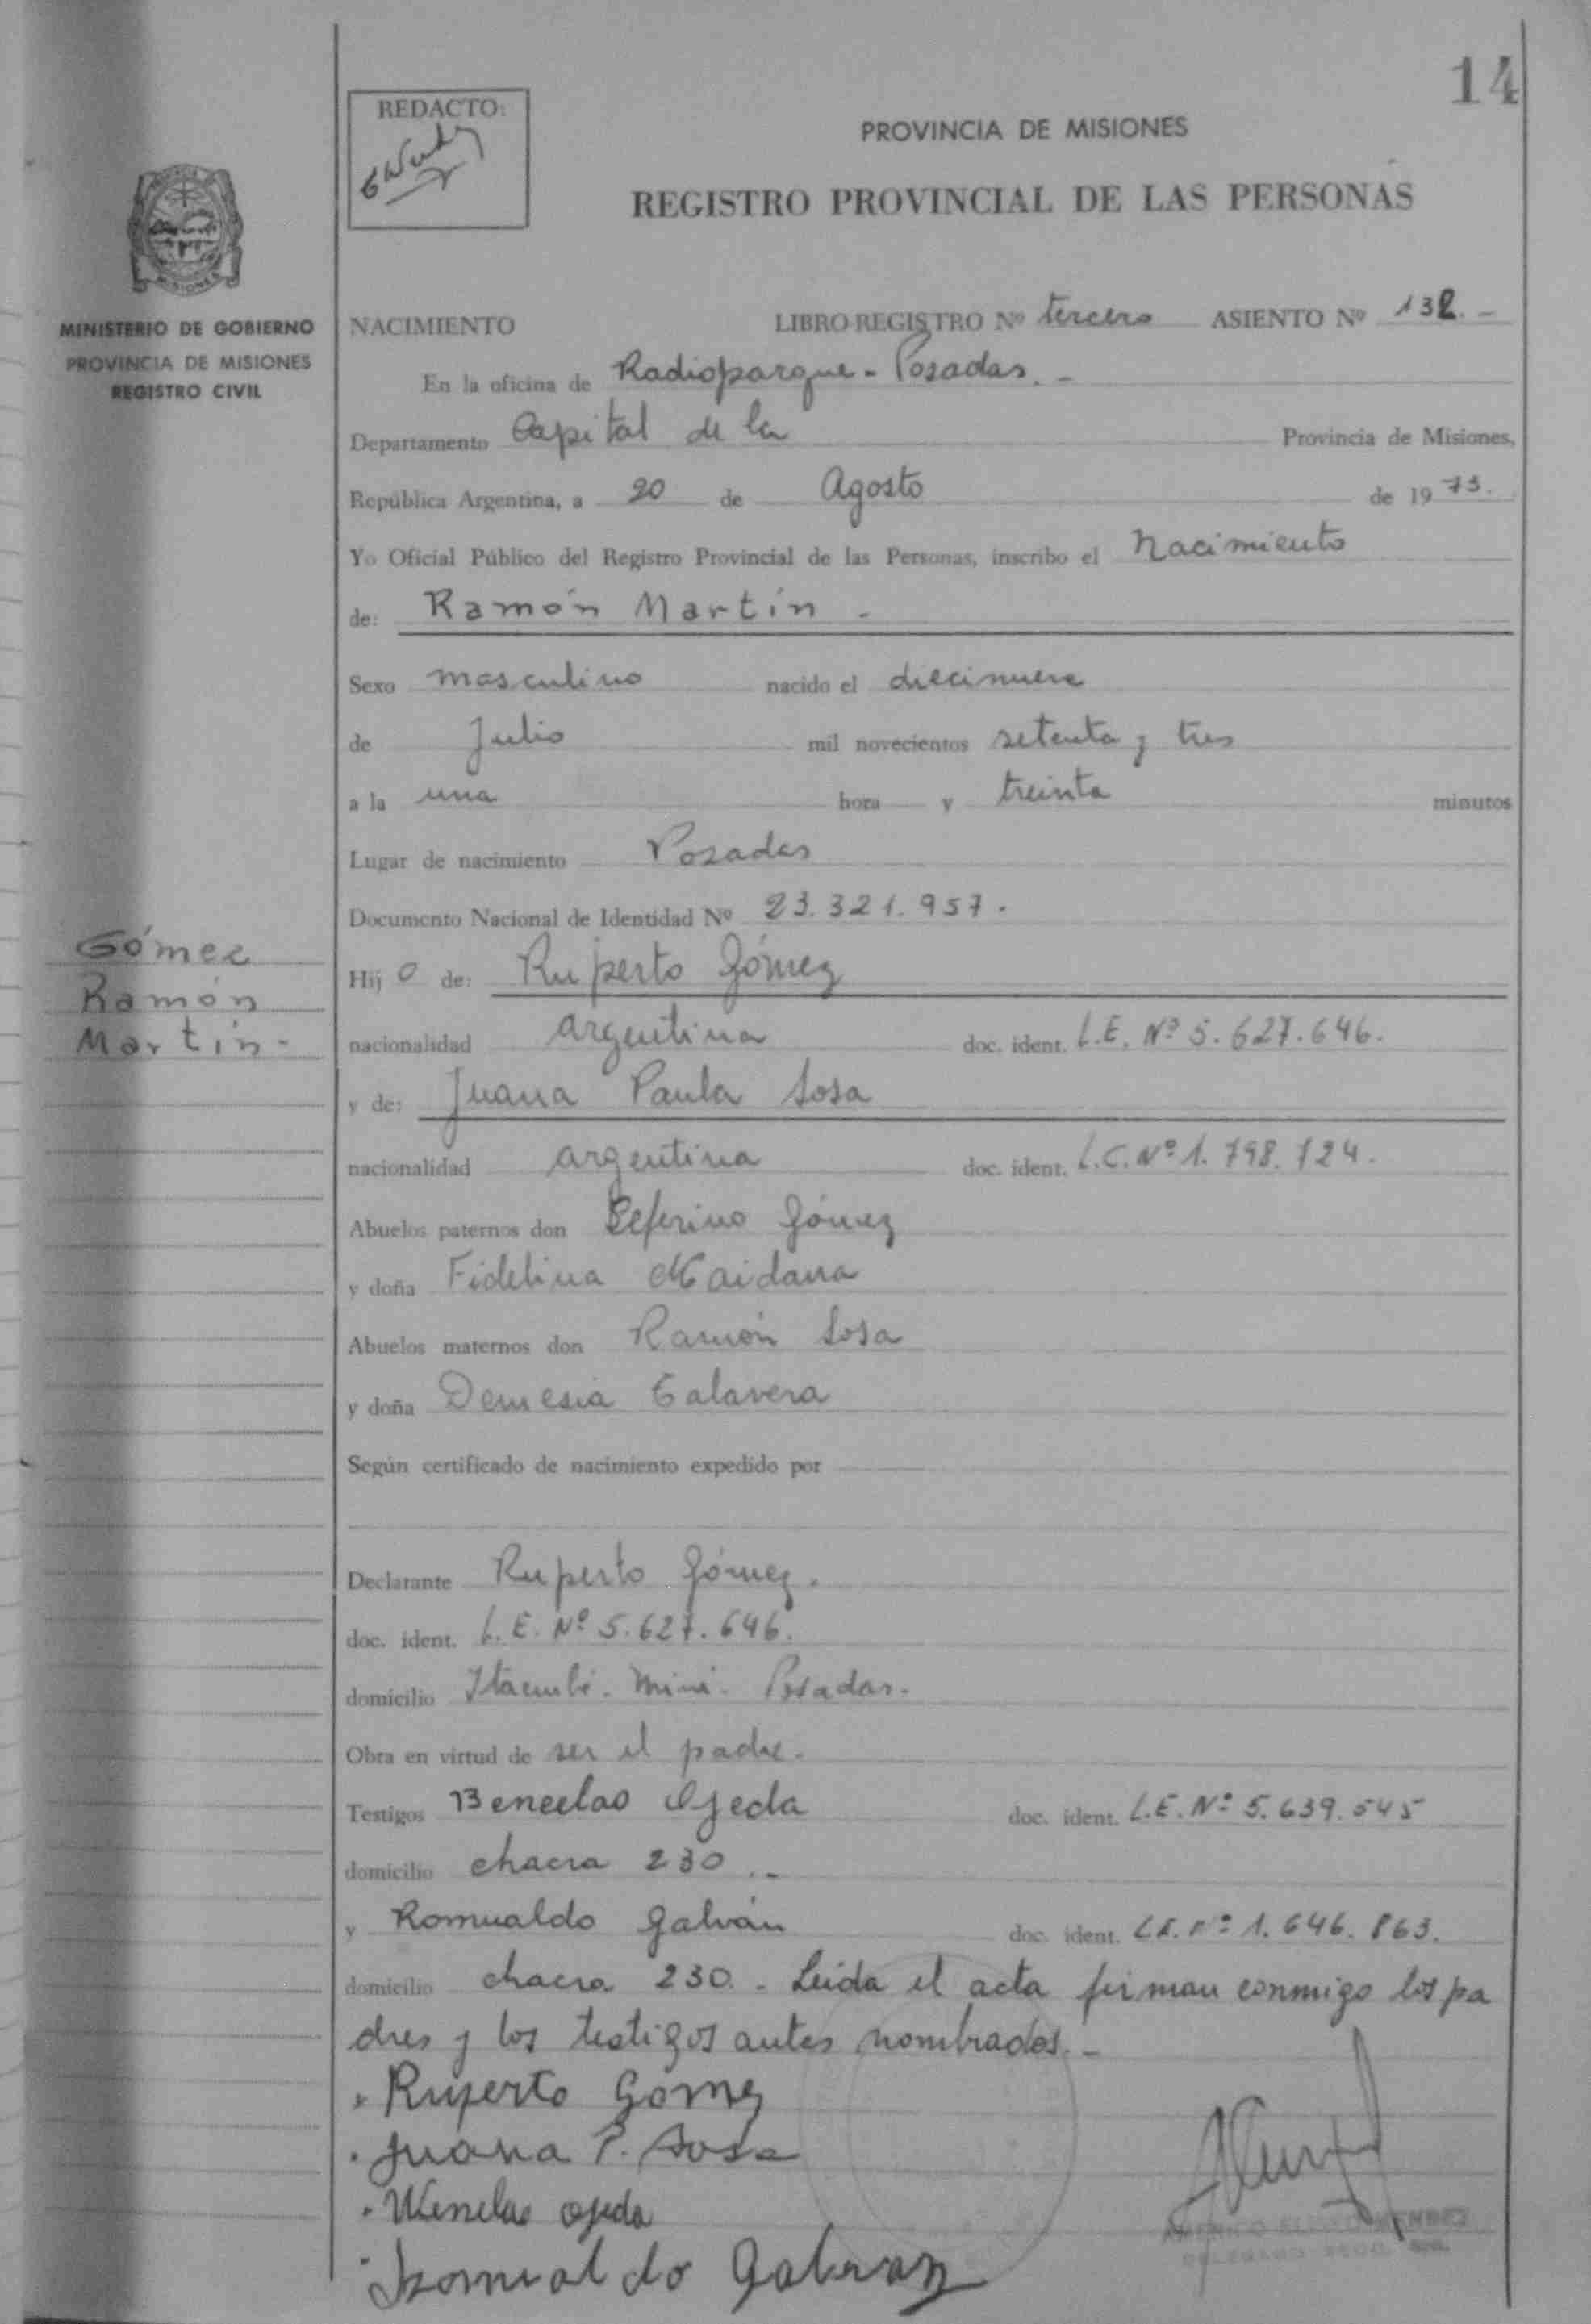 14
REDACTO:
PROVINCIA DE MISIONES
REGISTRO PROVINCIAL DE LAS PERSONAS
MINISTERIO DE GOBIERNO
PROVINCIA DE MISIONES
REGISTRO CIVIL
NACIMIENTO LIBRO REGISTRO Nº tercero ASIENTO Nº 132.-
En la oficina de Radioparque - Posadas.-
Departamento Capital de la Provincia de Misiones,
República Argentina, a 20 de Agosto de 1973.
Yo Oficial Público del Registro Provincial de las Personas, inscribo el Nacimiento
de: Ramón Martín -
Sexo masculino nacido el diecinueve
de Julio mil novecientos setenta y tres
a la una hora y treinta minutos
Lugar de nacimiento Posadas
Documento Nacional de Identidad Nº 23.321.957.
Gómez
Ramón
Martín-
Hijo de: Ruperto Gómez
nacionalidad argentina doc. ident. L.E. Nº 5.627.646.
y de: Juana Paula Sosa
nacionalidad argentina doc. ident. L.C. Nº 1.798.724.
Abuelos paternos don Seferino Gómez
y doña Fidelina Maidana
Abuelos maternos don Ramón Sosa
y doña Demesia Talavera
Según certificado de nacimiento expedido por
Declarante Ruperto Gómez.
doc. ident. L.E. Nº 5.627.646.
domicilio Itaembé - Miní - Posadas.
Obra en virtud de ser el padre.
Testigos Benselao Ojeda doc. ident. L.E. Nº 5.639.545
domicilio chacra 230.-
y Romualdo Galván doc. ident. L.E. Nº 1.646.863.
domicilio chacra 230.- Leida el acta firman conmigo los pa
dres y los testigos antes nombrados.-
Ruperto Gómez
Juana P. Sosa
Wenelao ojeda
Romualdo Galvan